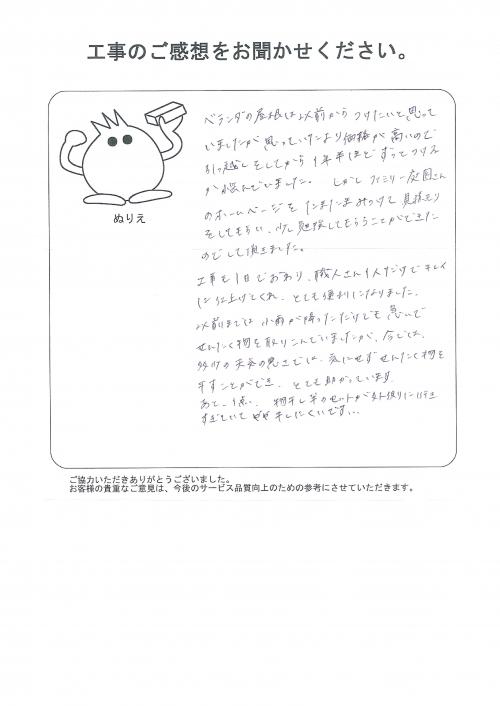 工事のご感想をお聞かせください。
ぬりえ
ベランダの屋根は以前からつけたいと思って
いましたが思っていたより価格が高いので
引っ越しをしてから1年半ほどずっとつける
か悩んでいました。 しかしファミリー庭園さん
のホームページをたまたまみつけて見積もり
をしてもらい、少し勉強してもらうことができた
のでして頂きました。
工事も1日でおわり、職人さん1人だけでキレイ
に仕上げてくれ、とても便利になりました。
以前までは小雨が降っただけでも急いで
せんたく物を取りこんでいましたが、今では、
多少の天気の悪さでは、気にせずせんたく物を
干すことができ、とても助かっています。
あと、1点、物干し竿のセットが外側に行き
すぎていてやや干しにくいです…
ご協力いただきありがとうございました。
お客様の貴重なご意見は、今後のサービス品質向上のための参考にさせていただきます。